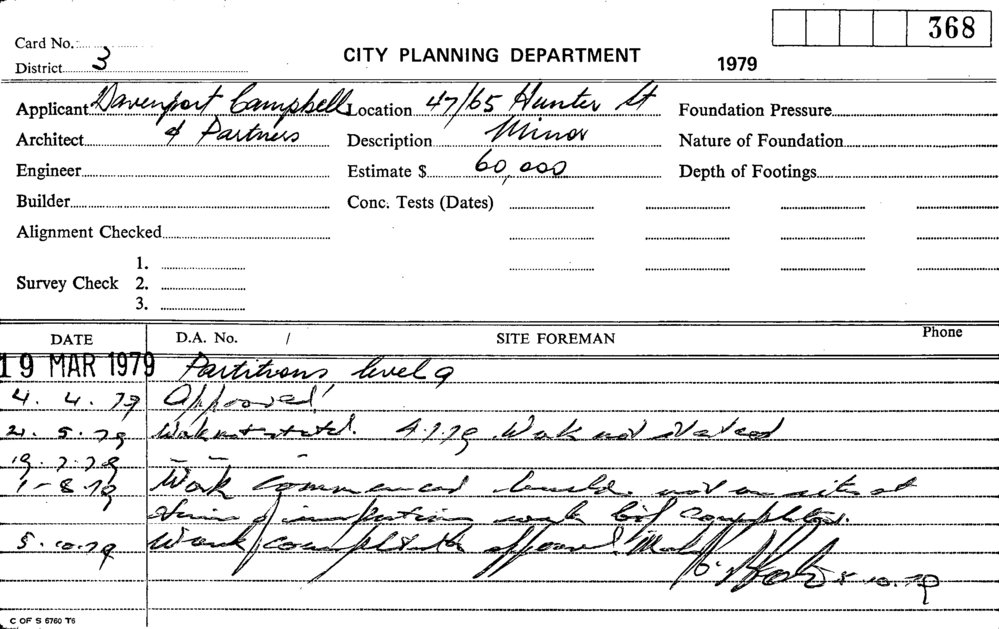 368
Card No.
District 3
CITY PLANNING DEPARTMENT
1979
Applicant Davenport Campbell Location 47/65 Hunter St Foundation Pressure
Architect & Partners Description Minor Nature of Foundation
Engineer Estimate $ 60,000 Depth of Footings
Builder Conc. Tests (Dates)
Alignment Checked
1.
Survey Check 2.
3.
DATE D.A. No. / SITE FOREMAN Phone
19 MAR 1979 Partitions level 9
4. 4. 79 Approved
21. 5. 79 Work not started. 4.7.79. Work not started
19. 7. 79 — — –
1-8.79 Work commenced not on site at
time of inspection work completed.
5.10.79 Work completed 5.10.79
C OF S 6760 T6